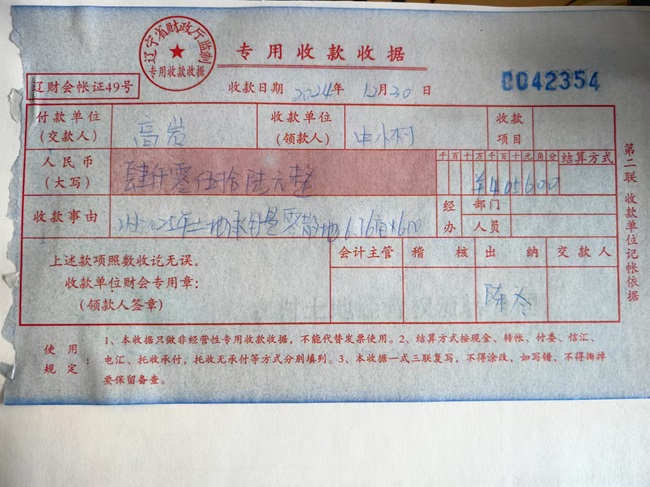 辽宁省财政厅监制
专用收款收据
专用收款收据
0042354
辽财会帐证49号
收款日期 2024年 12月30日
付款单位
(交款人)
高岩
收款单位
(领款人)
收款
项目
人民币
(大写)
肆仟零伍拾陆元整
千百十万千百十元角分
¥405600
结算方式
收款事由
2025年土地承包费
6.76亩×600
经办
部门
人员
上述款项照数收讫无误。
收款单位财会专用章:
(领款人签章)
会计主管
稽核
出纳
交款人
第二联 收款单位记帐依据
使用规定:
1、本收据只做非经营性专用收款收据,不能代替发票使用。2、结算方式按现金、转帐、付委、信汇、
电汇、托收承付,托收无承付等方式分别填列。3、本收据一式三联复写,不得涂改,如写错,不得撕掉
要保留备查。